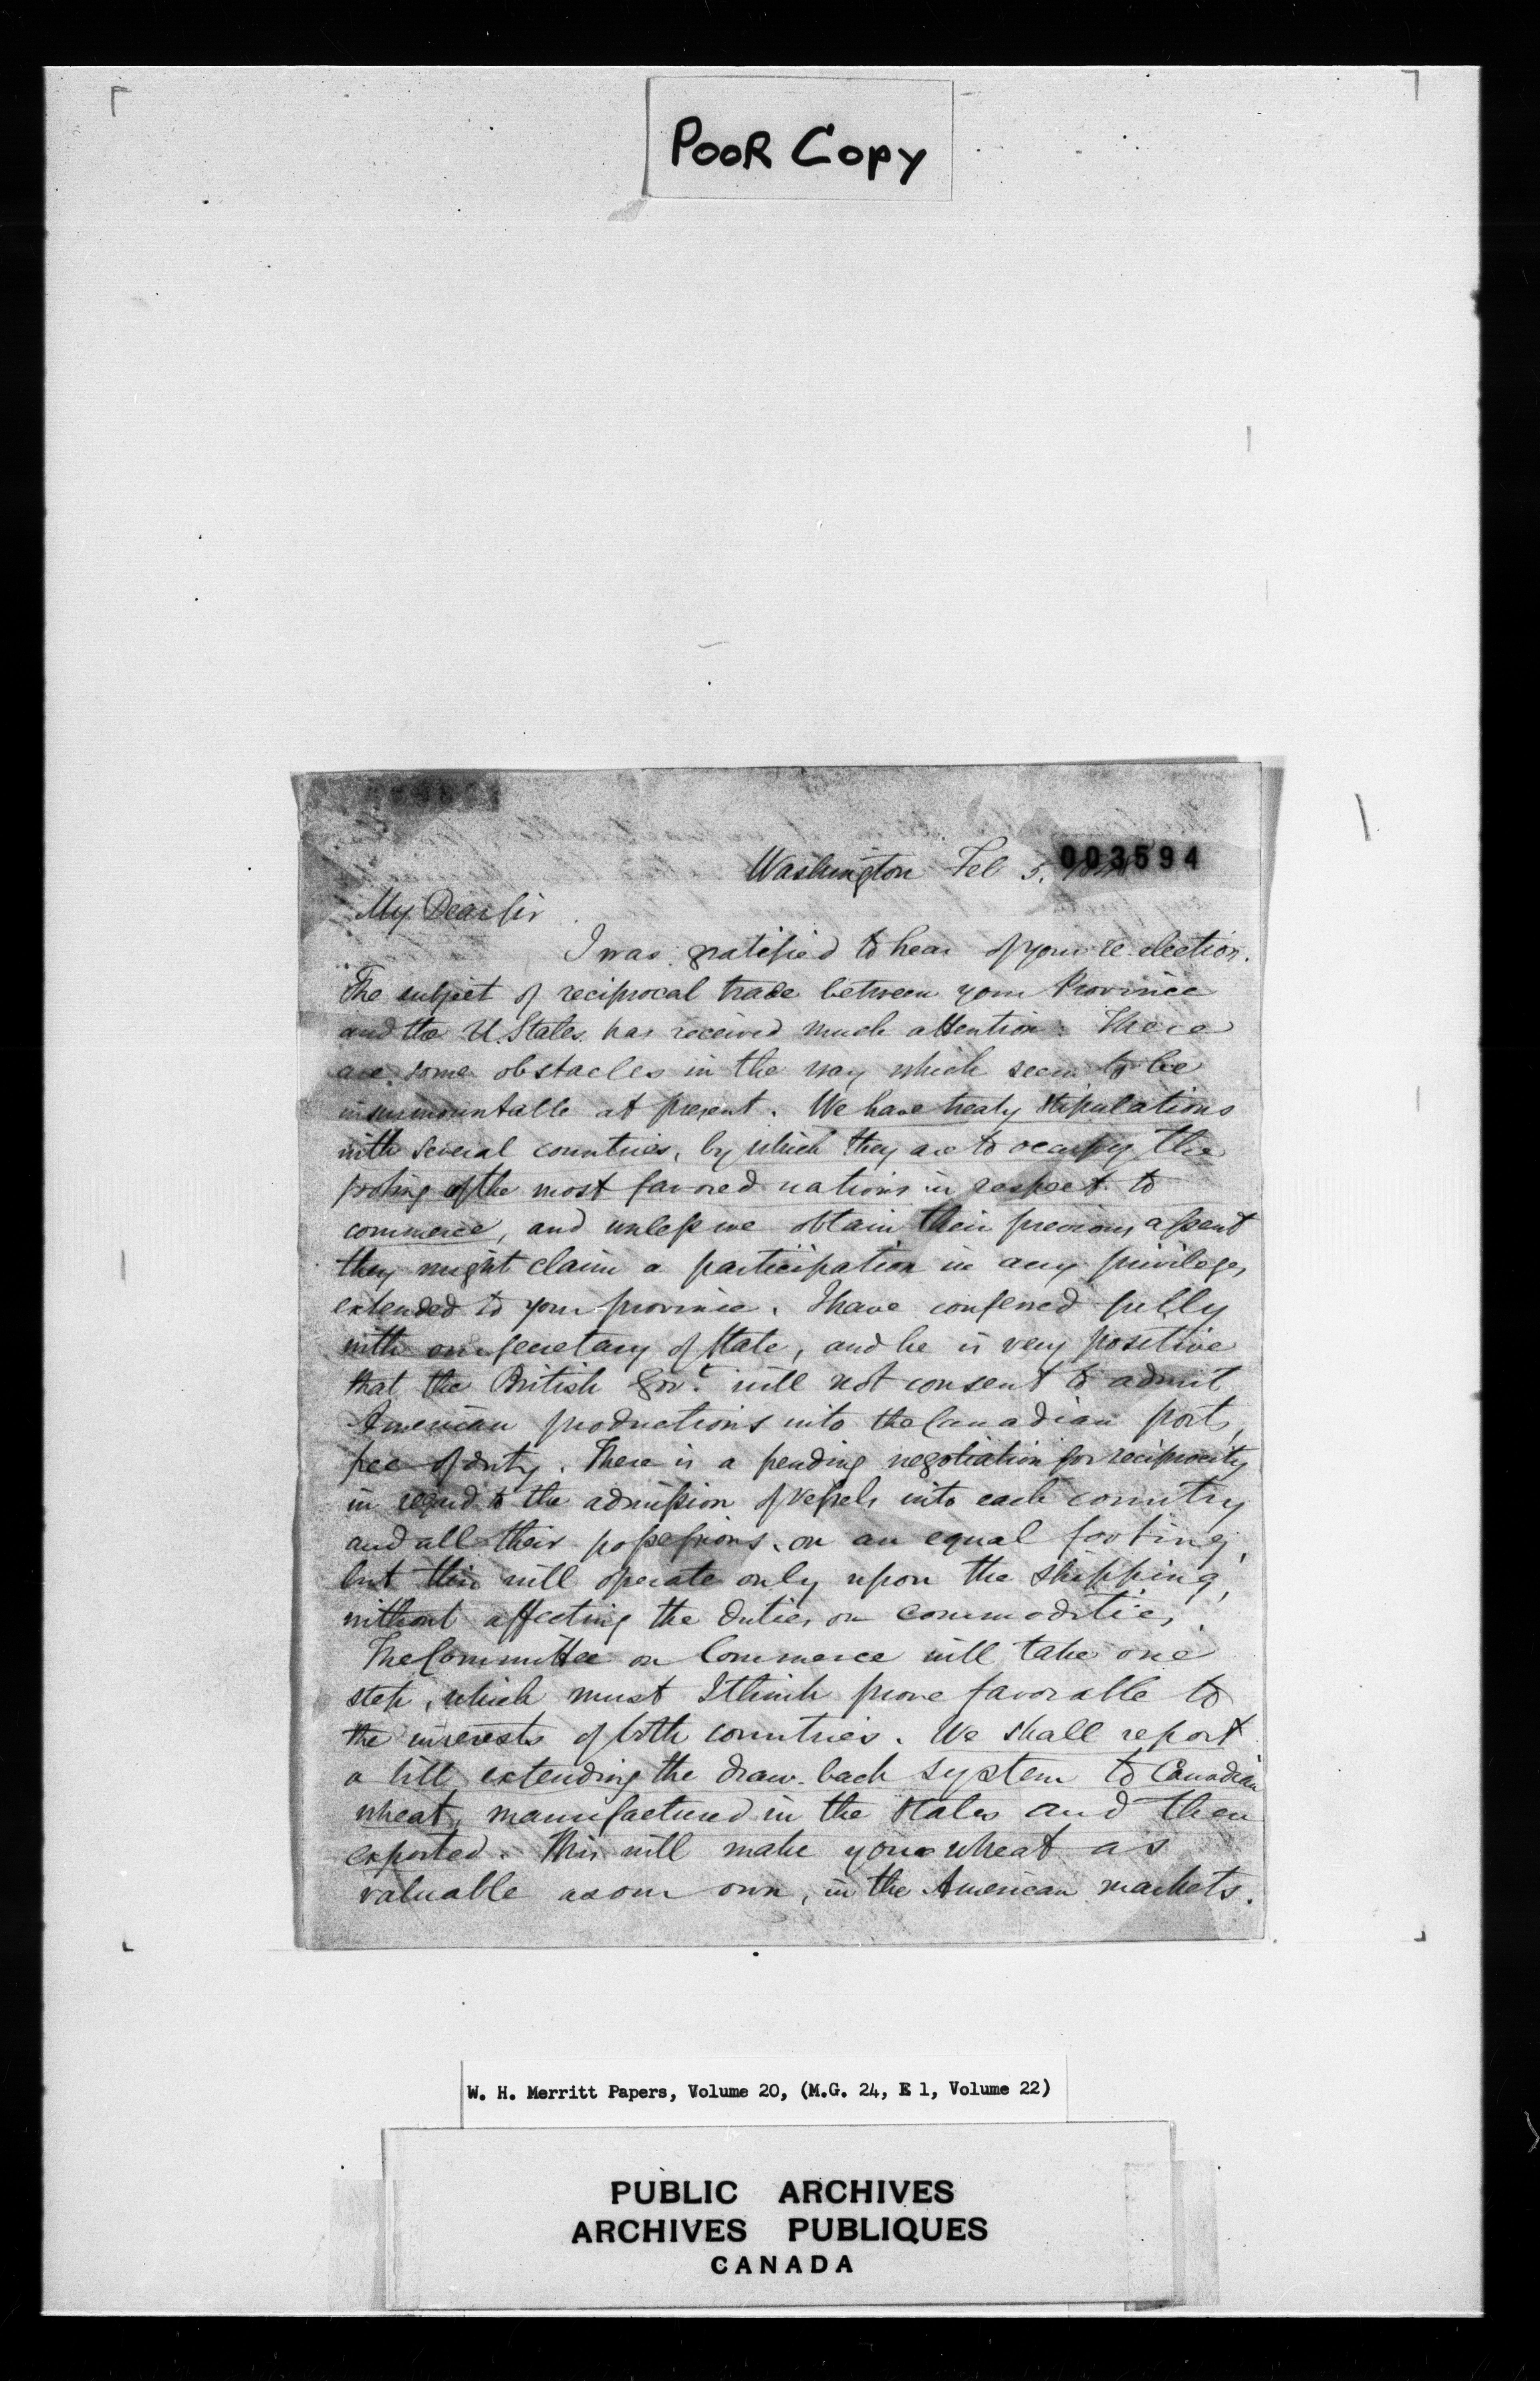 POOR COPY
003594
Washington Feb 5.
My Dear Sir
I was gratified to hear of your re-election.
The subject of reciprocal trade between your Province
and the U. States has received much attention. There
are some obstacles in the way which seem to be
insurmountable at present. We have treaty stipulations
with several countries, by which they are to occupy the
footing of the most favored nations in respect to
commerce, and unless we obtain their previous assent
they might claim a participation in any privileges
extended to your province. I have conferred fully
with our Secretary of State, and he is very positive
that the British Govt. will not consent to admit
American productions into the Canadian ports,
free of duty. There is a pending negotiation for reciprocity
in regard to the admission of vessels into each country
and all their possessions, on an equal footing,
but this will operate only upon the shipping,
without affecting the duties on commodities.
The Committee on Commerce will take one
step, which must I think prove favorable to
the interests of both countries. We shall report
a bill extending the draw-back system to Canadian
wheat, manufactured in the States and then
exported. This will make your wheat as
valuable as our own, in the American markets.
W. H. Merritt Papers, Volume 20, (M.G. 24, E 1, Volume 22)
PUBLIC ARCHIVES
ARCHIVES PUBLIQUES
CANADA